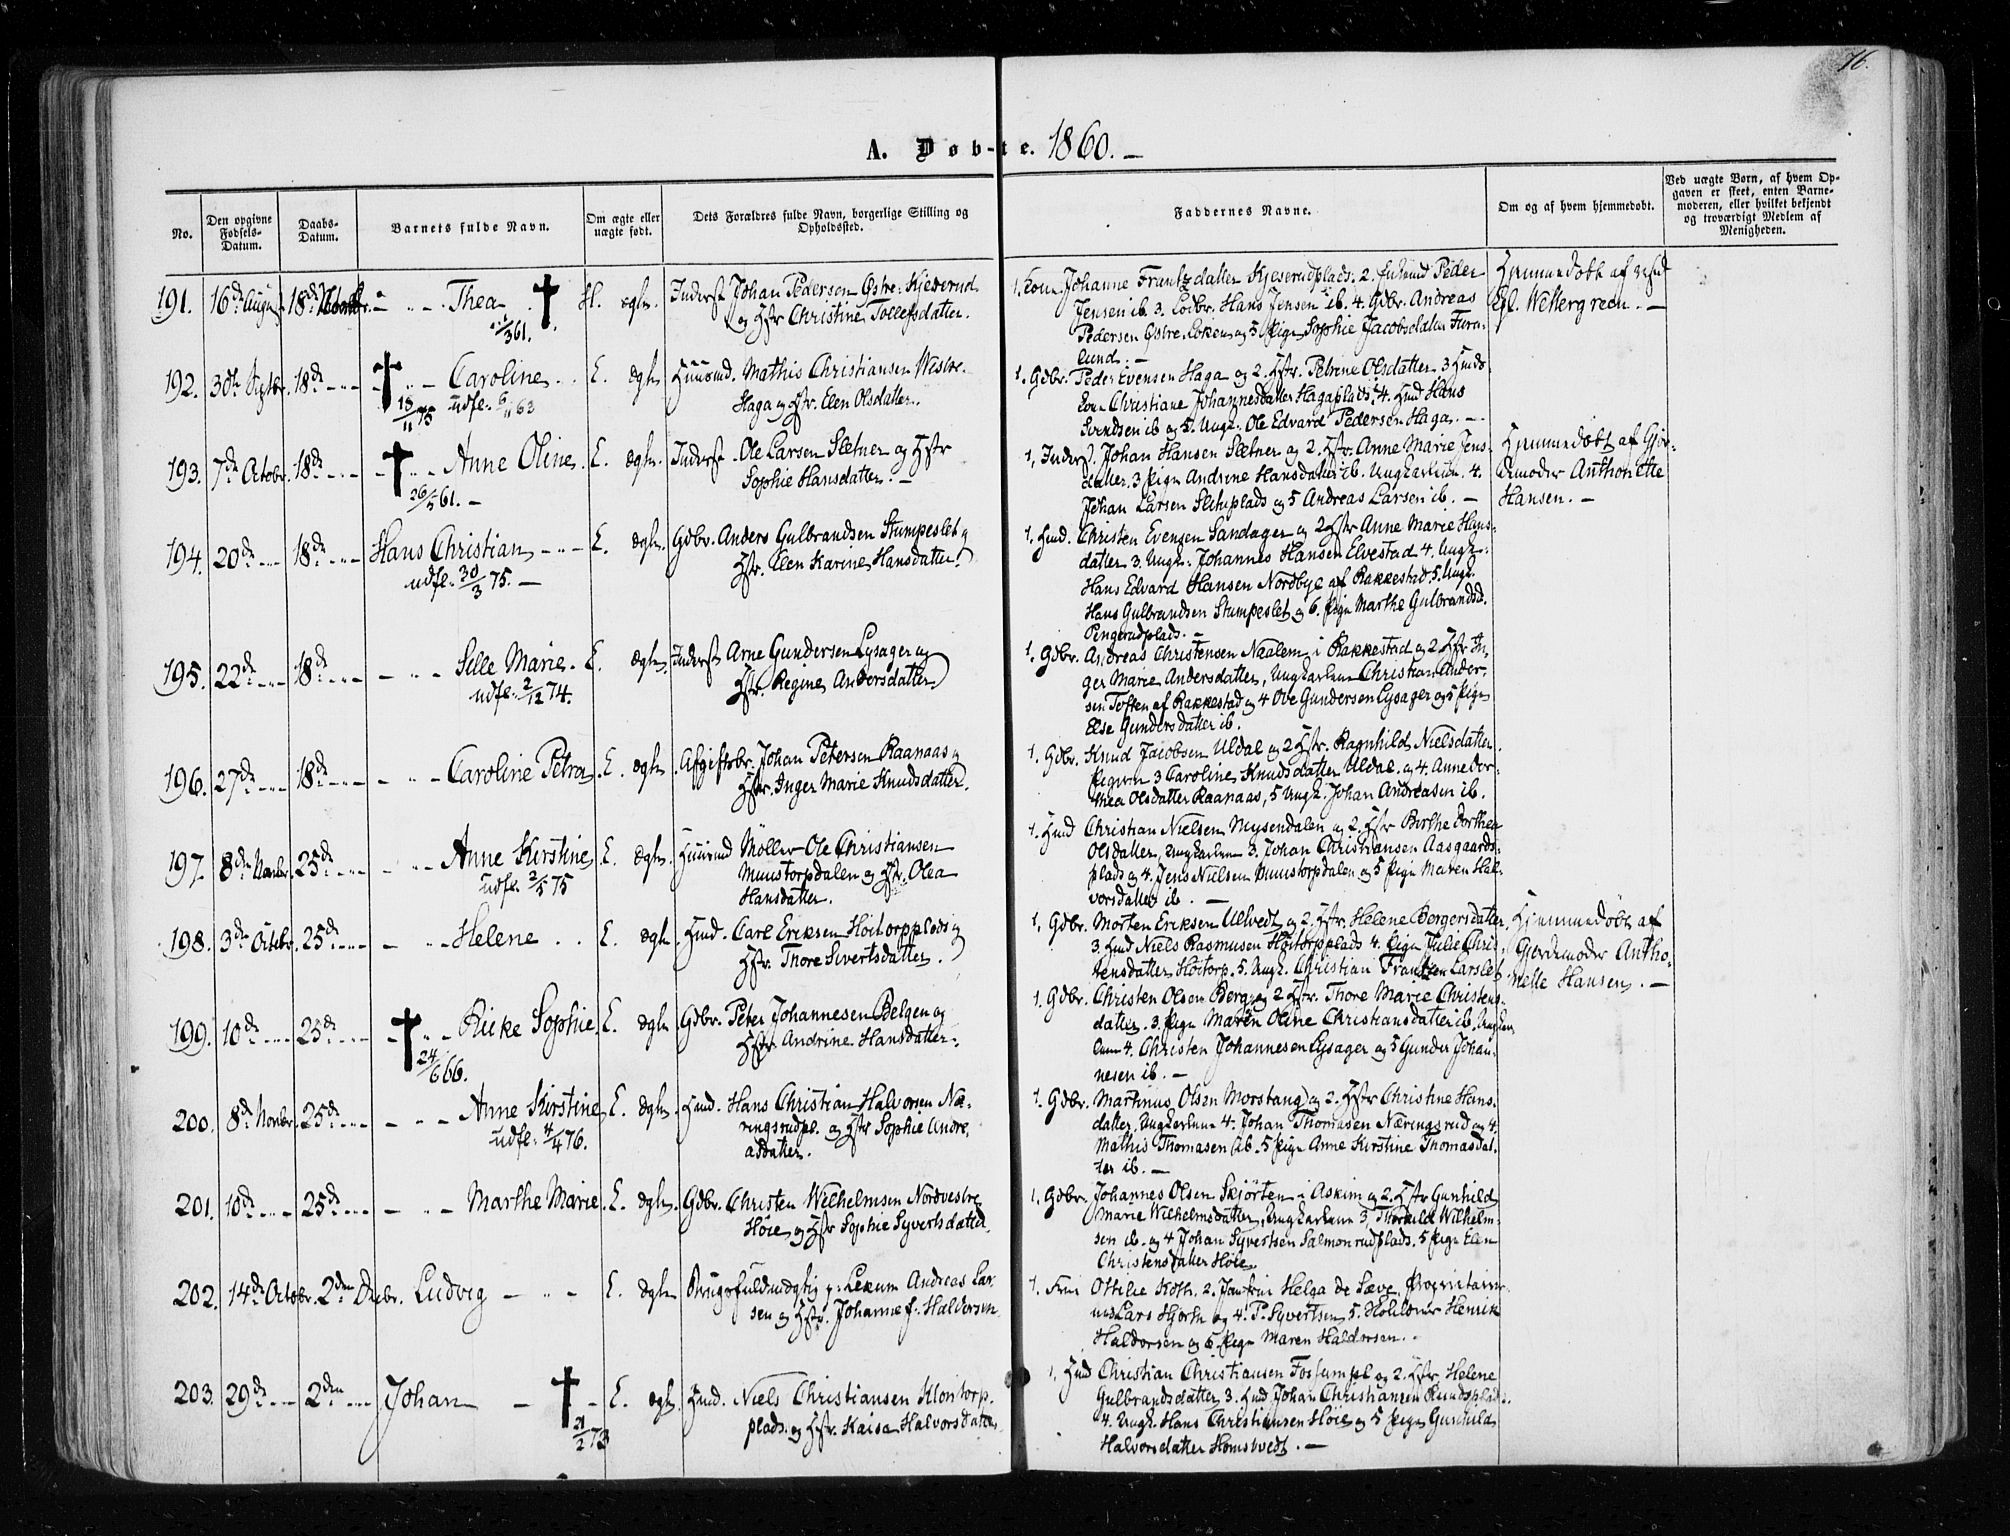 76.
A. Døb-te. 1860. —
No.
Den opgivne Fødsels-Datum.
Daabs-Datum.
Barnets fulde Navn.
Om ægte eller uægte født.
Dets Forældres fulde Navn, borgerlige Stilling og Opholdssted.
Faddernes Navne.
Om og af hvem hjemmedøbt.
Ved uægte Børn, af hvem Opgaven er skeet, enten Barnemoderen, eller hvilket bekjendt og troværdigt Medlem af Menigheden.
191. 16de August 18de — Thea ægte. Inderst Johan Pedersen Østre. Kjeserud
og Hstr Christine Tollefsdatter.
1/3 61.
1. Kone Johanne Frantzdatter Kjeserudplads. 2. Peder
Jensen ib 3. Hans Jensen ib. 4. Gdbr. Andreas
Pedersen Østre Løken og 5 Pige Sophie Jacobsdatter Furu-
lund. —
Hjemmedøbt af
Wettergreen. —
192. 30te Septbr. 18de Caroline E. ægte Huusmd. Mathis Christiansen Westre.
Haga og Hstr. Elen Olsdatter.
18/11 75 udfl. 6/11 63
1. Gdbr. Peder Evensen Haga og 2. Hstr. Petrine Olsdatter. 3 Hmds
Kone Christiane Johannesdatter Hagaplads. 4. Hmd Hans
Svendsen ib og 5. Ungk. Ole Edvard Pedersen Haga. —
193. 7de Octobr. 18de Anne Oline E. ægte. Inderst Ole Larsen Sletner og Hstr
Sophie Hansdatter. —
26/5 61. —
1. Inderst. Johan Hansen Sletner og 2. Hstr. Anne Marie Jens-
datter. 3 Pige Andrine Hansdatter ib. Ungkarlene 4.
Johan Larsen Sletnplads og 5 Andreas Larsen ib. —
Hjemmedøbt af Gjor-
demoder Anthonette
Hansen. —
194. 20de 18de Hans Christian E. ægte. Gdbr. Anders Gulbrandsen Stumpeslet og
Hstr. Elen Karine Hansdatter.
udfl. 30/3 75. —
1. Hmd. Christen Evensen Sandager og 2 Hstr Anne Marie Hans-
datter 3. Ungk. Johannes Hansen Elvestad 4. Ungk.
Hans Edvard Hansen Nordbye af Rakkestad 5. Ungk.
Hans Gulbrandsen Stumpeslet og 6. Pige Marthe Gulbrandsd.
Pengerudplads. —
195. 22de 18de Sille Marie. E. ægte. Inderst Arne Gundersen Lysager og
Hstr. Regine Andersdatter.
udfl. 2/12 74.
1. Gdbr. Andreas Christensen Naalem i Rakkestad og 2 Hstr In-
ger Marie Andersdatter, Ungkarlene Christian Ander-
sen Toften af Rakkestad og 4 Ove Gundersen Lysager og 5 Pige
Else Gundersdatter ib.
196. 27de 18de Caroline Petra. E. ægte. Afgiftsbr. Johan Petersen Raanaas og
Hstr. Inger Marie Knudsdatter.
1. Gdbr. Knud Jacobsen Uldal og 2 Hstr. Ragnhild Nielsdatter.
Pigerne 3 Caroline Knudsdatter Uldal. og 4. Anne Dor-
thea Olsdatter Raanaas, 5 Ungk. Johan Andreasen ib.
197. 8de Novbr. 25de Anne Kirstine E. ægte. Huusmd Møller Ole Christiansen
Muustorpdalen og Hstr. Olea
Hansdatter.
udfl. 2/5 75
1. Hmd Christian Nielsen Mysendalen og 2. Hstr Birthe Dorthea
Olsdatter, Ungkarlene 3. Johan Christiansen Aasgaards-
plads og 4. Jens Nielsen Muustorpdalen og 5 Pige Maren Hal-
vorsdatter ib. —
198. 3de Octobr. 25de Helene E. ægte. Hmd. Carl Eriksen Høitorpplads og
Hstr. Thore Sivertsdatter.
1. Gdbr. Morten Eriksen Ulvedt og 2. Hstr. Helene Borgersdatter
3. Hmd Niels Rasmusen Høitorpplads 4. Pige Julie Chris-
tensdatter Høitorp. 5. Ungk. Christian Frantzen Larslet
Hjemmedøbt af
Gjordemoder Antho-
nette Hansen. —
199. 10de 25de Ricke Sophie E. ægte Gdbr. Peter Johannesen Belgen og
Hstr Andrine Hansdatter.
24/6 66.
1. Gdbr. Christen Olsen Berg og 2 Hstr. Thore Marie Christens-
datter. 3. Pige Maren Oline Christiansdatter ib.
4. Christen Johannesen Lysager og 5 Gunder Johan-
nesen ib. —
200. 8de Novbr. 25de Anne Kirstine E. ægte. Hmd. Hans Christian Halvorsen Næ-
ringsrudpl. og Hstr Sophie Andre-
asdatter.
udfl. 4/4 76.
1. Gdbr. Martinus Olsen Morstang og 2. Hstr Christine Hans-
datter, Ungkarlene 4. Johan Thomasen Næringsrud og 4.
Mathis Thomasen ib. 5 Pige Anne Kirstine Thomasdat-
ter ib. —
201. 10de 25de Marthe Marie. E. ægte. Gdbr. Christen Wilhelmsen Nordvestre
Høie og Hstr Sophie Syvertsdatter.
1. Gdbr. Johannes Olsen Skjørten i Askim og 2. Hstr Gunhild
Marie Wilhelmsdatter, Ungkarlene 3. Thorkild Wilhelm-
sen ib. og 4 Johan Syvertsen Salmonrudplads. 5 Pige Elen
Christensdatter Høie.
202. 14de Octobr. 2den Decbr. Ludvig E. ægte Brugsfuldmægtig p. Lekum Andreas Lar-
sen og Hstr. Johanne f. Haldorsen
1. Frue Ottilie Koth. 2. Jomfrue Helga de Seve. Proprietairer-
ne 3 Lars Hjorth og 4. P. Syvertsen 5. Henrik
Haldorsen og 6. Pige Maren Haldorsen.
203. 29de 2den Johan E. ægte. Hmd. Niels Christiansen Klontorp-
plads. og Hstr. Kaisa Halvorsdatter
21/2 73
1. Hmd Christian Christiansen Fossumpl. og 2. Hstr. Helene
Gulbrandsdatter 3. Hmd Johan Christiansen Rundsplads.
4. Ungk. Hans Christiansen Høie og 5 Pige Gunhild
Halvorsdatter Homstvedt. —